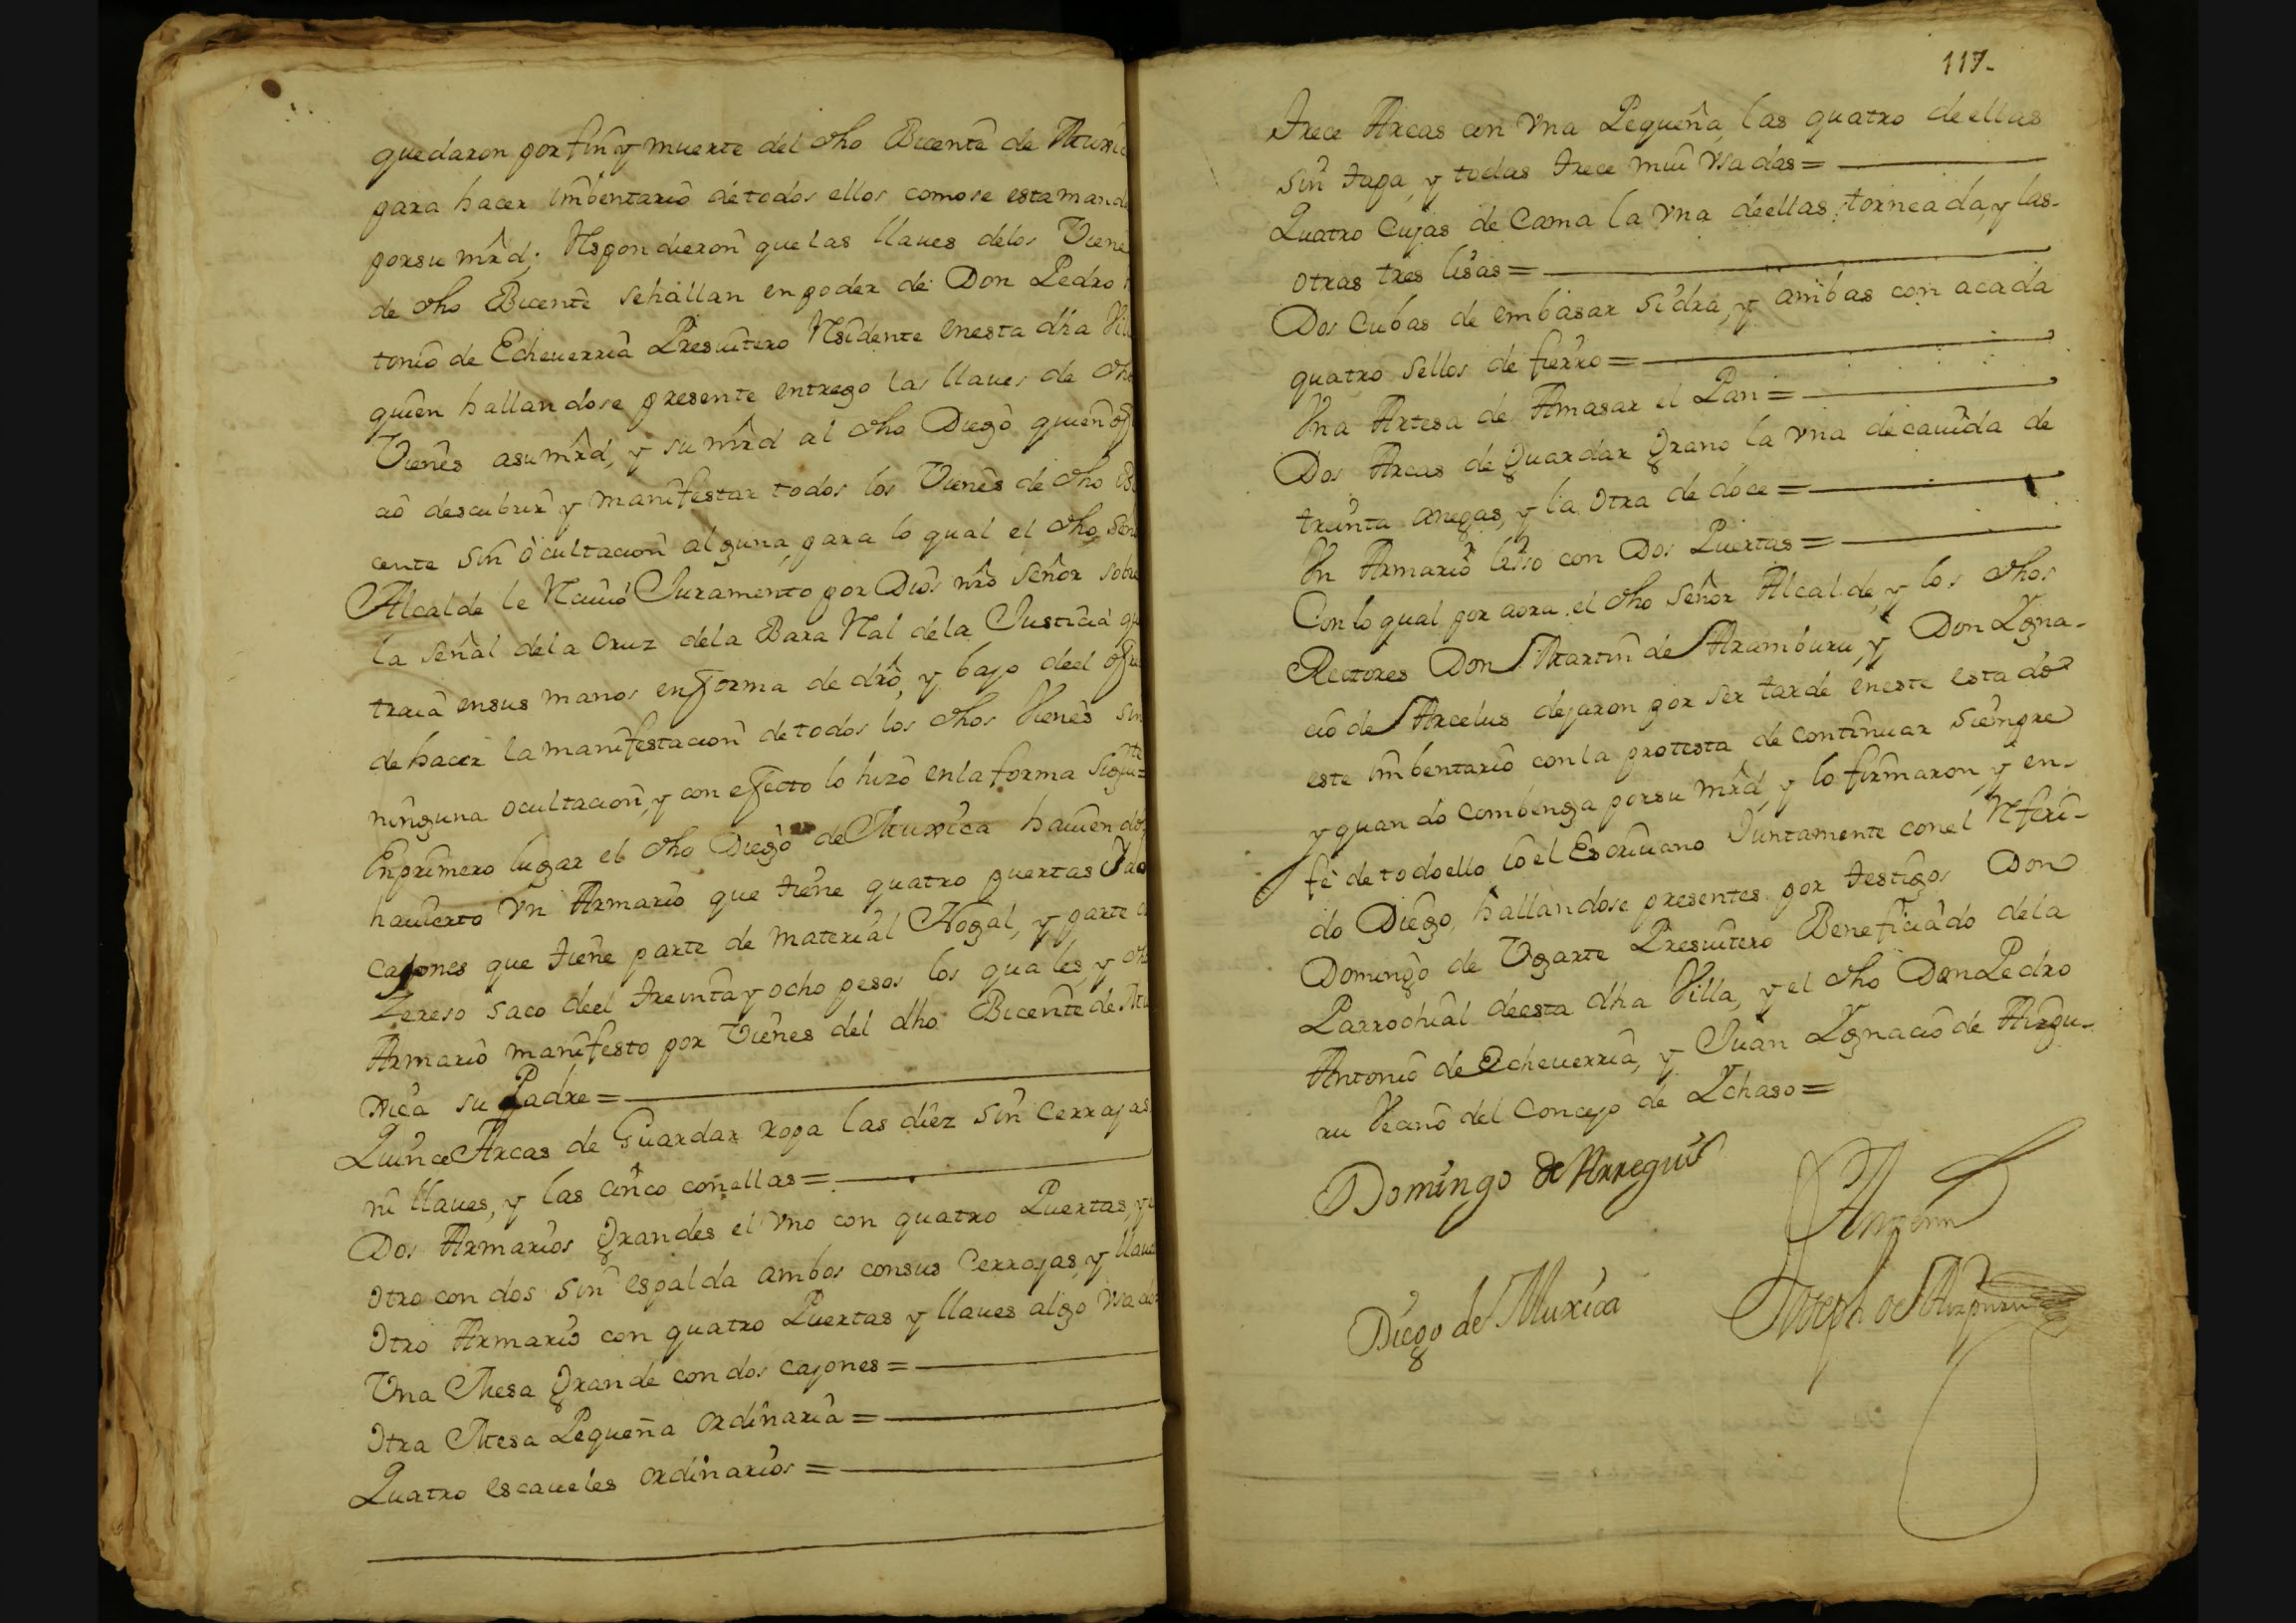 quedaron por fin y muerte del dho Bicente de Muxic
para hacer imbentario de todos ellos como se esta manda
por su mrd; Respondieron que las llaues de los Viene
de dho Bicente se hallan en poder de Don Pedro
tonio de Echeuerria Presuitero Residente en esta dha Vi
quien hallandose presente entrego las llaues de dho
Vienes a su mrd, y su mrd al dho Diego quien of
cio descubrir y manifestar todos los Vienes de dho
cente sin ocultacion alguna, para lo qual el dho Señ
Alcalde le Reciuio Juramento por Dios nro Señor sobre
la señal de la cruz de la Bara Real de la Justicia q
traia en sus manos en forma de dro, y bajo de el
de hacer la manifestacion de todos los dhos Vienes sin
ninguna ocultacion, y con efecto lo hizo en la forma siguite=
En primero lugar el dho Diego de Muxica hauiendo
hauierto Vn Armario que tiene quatro puertas
cajones que tiene parte de material Nogal, y parte
Zereso saco de el treinta y ocho pesos los quales, y dho
Armario manifesto por Vienes del dho Bicente de Mu
xica su Padre=
Quince Arcas de Guardar ropa las diez sin cerrajas
ni llaues, y las cinco con ellas=
Dos Armarios Grandes el Vno con quatro Puertas, y
otro con dos sin espalda ambos con sus Cerrajas, y llaue
Otro Armario con quatro Puertas y llaues algo Vsado
Vna Mesa Grande con dos cajones=
Otra Mesa Pequeña ordinaria=
Quatro escaueles ordinarios=
117.
Trece Arcas con Vna Pequeña, las quatro de ellas
sin tapa, y todas trece mui Vsadas=
Quatro Cujas de Cama la Vna de ellas torneada, y las
otras tres lisas=
Dos Cubas de embasar sidra, y ambas con a cada
quatro sellos de fierro=
Vna Artesa de Amasar el Pan=
Dos Arcas de Guardar Grano la Vna de cauida de
treinta anegas, y la otra de doce=
Vn Armario liso con Dos Puertas=
Con lo qual por aora el dho Señor Alcalde, y los dhos
Rectores Don Martin de Aramburu, y Don Igna-
cio de Arcelus dejaron por ser tarde en este estado
este imbentario con la protesta de continuar siempre
y quando combenga por su mrd, y lo firmaron, y en
fe de todo ello io el Escriuano Juntamente con el Referi-
do Diego, hallandose presentes por testigos Don
Domingo de Vgarte Presuitero Beneficiado de la
Parrochial de esta dha Villa, y el dho Don Pedro
Antonio de Echeuerria, y Juan Ignacio de Aizpu-
ru Vecino del Concejo de Ichaso=
Domingo de Arregui
Diego de Muxica
Joseph de Aizpuru